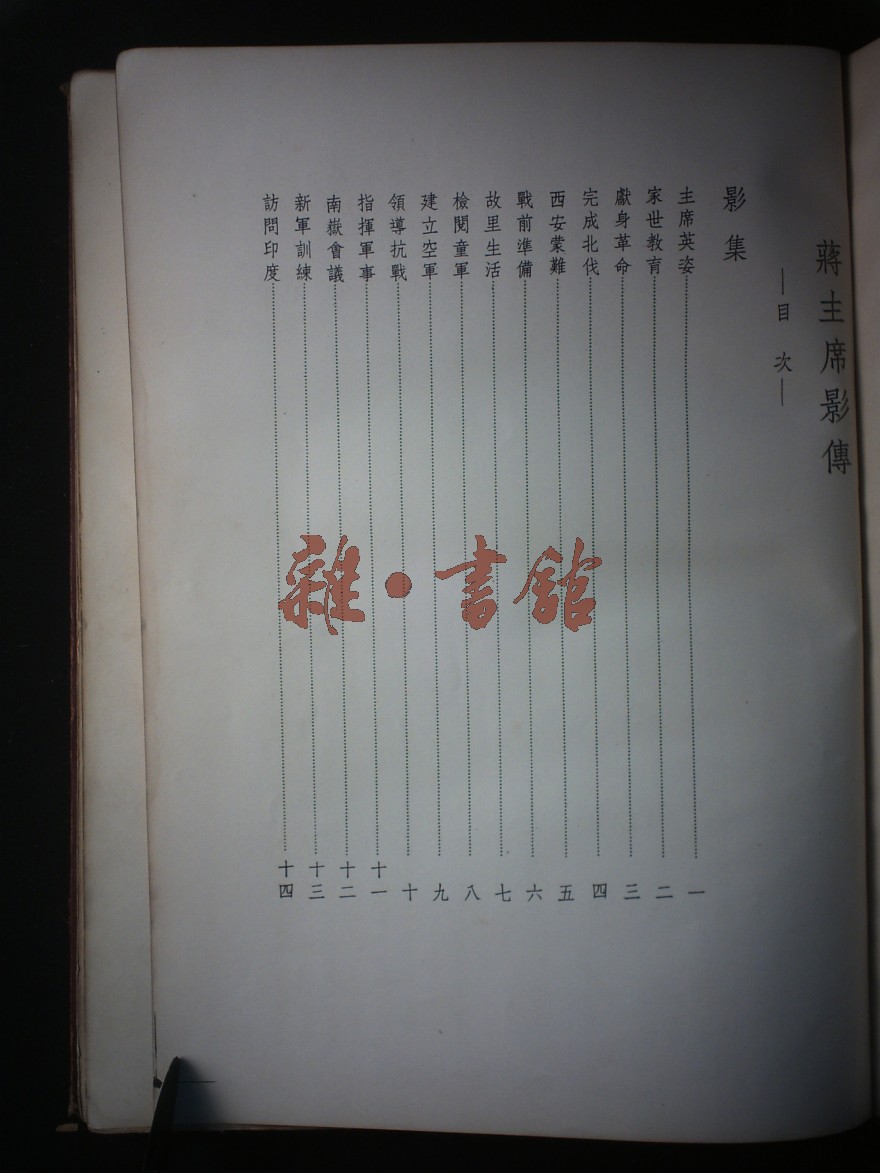 蔣主席影傳
—目次—
影集
主席英姿……一
家世教育……二
獻身革命……三
完成北伐……四
西安蒙難……五
戰前準備……六
故里生活……七
檢閱童軍……八
建立空軍……九
領導抗戰……十
指揮軍事……十一
南嶽會議……十二
新軍訓練……十三
訪問印度……十四
雜·書館